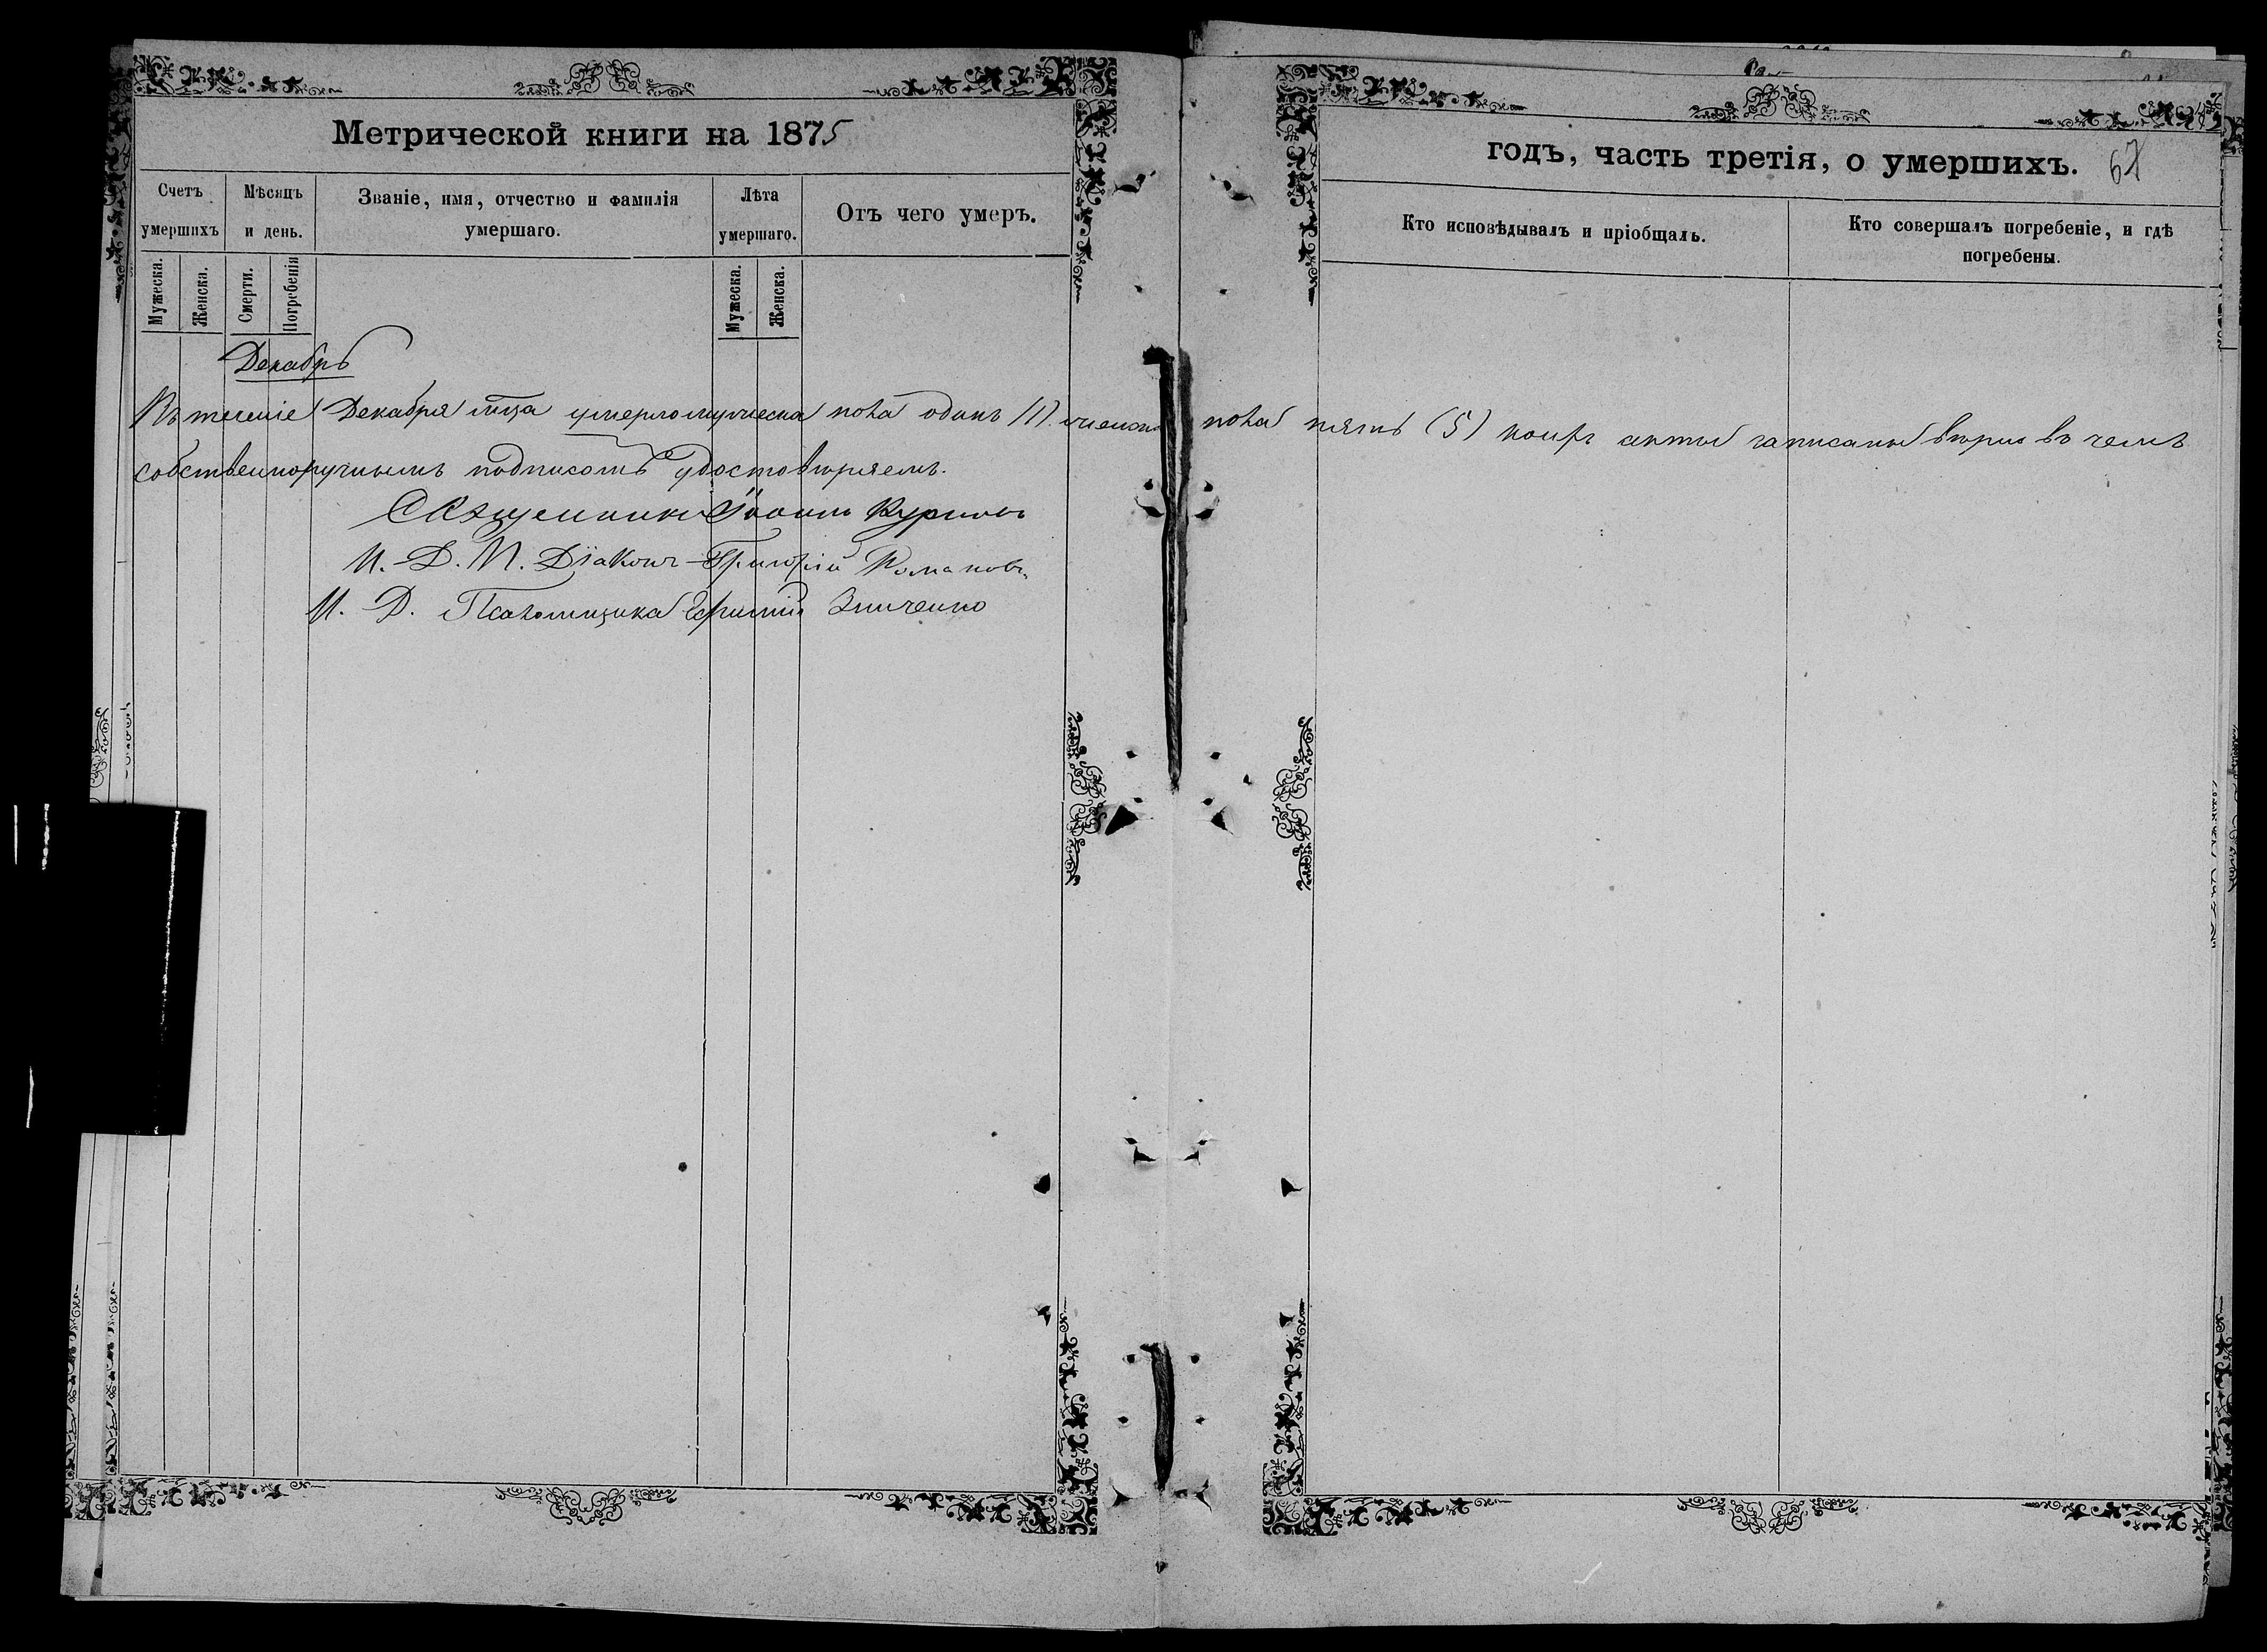 Метрической книги на 1875
годъ, часть третія, о умершихъ. 67
Счетъ умершихъ
Мѣсяцъ и день.
Званіе, имя, отчество и фамилія умершаго.
Лѣта умершаго.
Отъ чего умеръ.
Кто исповѣдывалъ и пріобщалъ.
Кто совершалъ погребеніе, и гдѣ погребены.
Мужеска.
Женска.
Смерти.
Погребенія
Мужеска.
Женска.
Декабрь
Въ теченіе Декабря мца умерло мужеска пола одинъ (1). женска пола пять (5) коихъ акты записаны вѣрно въ чемъ
собственноручнымъ подписомъ удостовѣряемъ.
Священникъ Іоаннъ Куриловъ
И. Д. П. Діаконъ Григорій Романовъ
И. Д. Псаломщика Зинченко